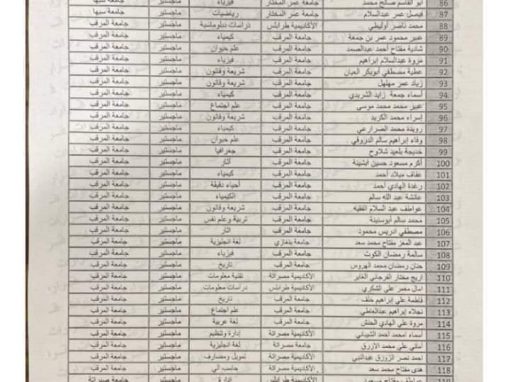 86 أبو القاسم صالح محمد جامعة عمر المختار فيزياء ماجستير جامعة سبها
87 فيصل عمر عبدالسلام جامعة عمر المختار رياضيات ماجستير جامعة سبها
88 محمد ناصر أوليطي الأكاديمية طرابلس دراسات دبلوماسية ماجستير جامعة المرقب
89 عبير محمود عمر بن جمعة جامعة المرقب كيمياء ماجستير جامعة المرقب
90 شادية مفتاح أحمد عبدالصمد جامعة المرقب علم حيوان ماجستير جامعة المرقب
91 مروة عبدالسلام ابراهيم جامعة المرقب فيزياء ماجستير جامعة المرقب
92 عطية مصطفي أبوبكر جامعة المرقب شريعة وقانون ماجستير جامعة المرقب
93 زياد عمر مهلهل جامعة المرقب شريعة وقانون ماجستير جامعة المرقب
94 أسماء جمعة زايد الشريدي جامعة المرقب كيمياء ماجستير جامعة المرقب
95 عبير محمد محمد موسى جامعة المرقب علم اجتماع ماجستير جامعة المرقب
96 إسراء محمد الكريد جامعة المرقب شريعة وقانون ماجستير جامعة المرقب
97 رويدة محمد الصرارعي جامعة المرقب كيمياء ماجستير جامعة المرقب
98 وفاء إبراهيم سالم جامعة المرقب علم حيوان ماجستير جامعة المرقب
99 خديجة بلعيد شلاوح جامعة المرقب جغرافيا ماجستير جامعة المرقب
100 أكرم مسعود حسين جامعة المرقب آثار ماجستير جامعة المرقب
101 عفاف ميلاد أحمد جامعة المرقب كيمياء ماجستير جامعة المرقب
102 رغدة الهادي أحمد جامعة المرقب أحياء دقيقة ماجستير جامعة المرقب
103 عائشة عبد الله سالم جامعة المرقب الكيمياء ماجستير جامعة المرقب
104 عواطف عبد السلام الفقيه جامعة المرقب شريعة وقانون ماجستير جامعة المرقب
105 محمد سالم أبوسنينة جامعة المرقب تربية وعلم نفس ماجستير جامعة المرقب
106 مصطفي ادريس محمود جامعة المرقب آثار ماجستير جامعة المرقب
107 عبد المعز مفتاح محمد سعد جامعة بنغازي لغة انجليزية ماجستير جامعة المرقب
108 سالمة رمضان الكوت جامعة المرقب فيزياء ماجستير جامعة المرقب
109 حنان رمضان محمد الهروس جامعة المرقب تاريخ ماجستير جامعة المرقب
110 أريج مختار الفرجاني الغابر الأكاديمية مصراتة تقنية معلومات ماجستير جامعة المرقب
111 امال مصر علي الشكري الأكاديمية طرابلس دراسات معلومات ماجستير جامعة المرقب
112 فاطمة علي إبراهيم خلف جامعة المرقب تاريخ ماجستير جامعة المرقب
113 نجلاء إبراهيم عبدالعاطي جامعة المرقب علم اجتماع ماجستير جامعة المرقب
114 مروة علي الهادي الحنش جامعة المرقب لغة عربية ماجستير جامعة المرقب
115 أسماء امحمد أحمد الشيباني الأكاديمية مصراتة إدارة وتنظيم ماجستير جامعة المرقب
116 أماني علي محمد الأزرق الأكاديمية مصراتة لغة انجليزية ماجستير جامعة المرقب
117 احمد نصر الزروق عبدالنبي الأكاديمية مصراتة تمويل ومصارف ماجستير جامعة المرقب
118 هدى مفتاح محمد سعد الأكاديمية مصراتة حاسب آلي ماجستير جامعة المرقب
119 مفتاح مسعود الأكاديمية طرابلس إدارة ماجستير جامعة مصراتة